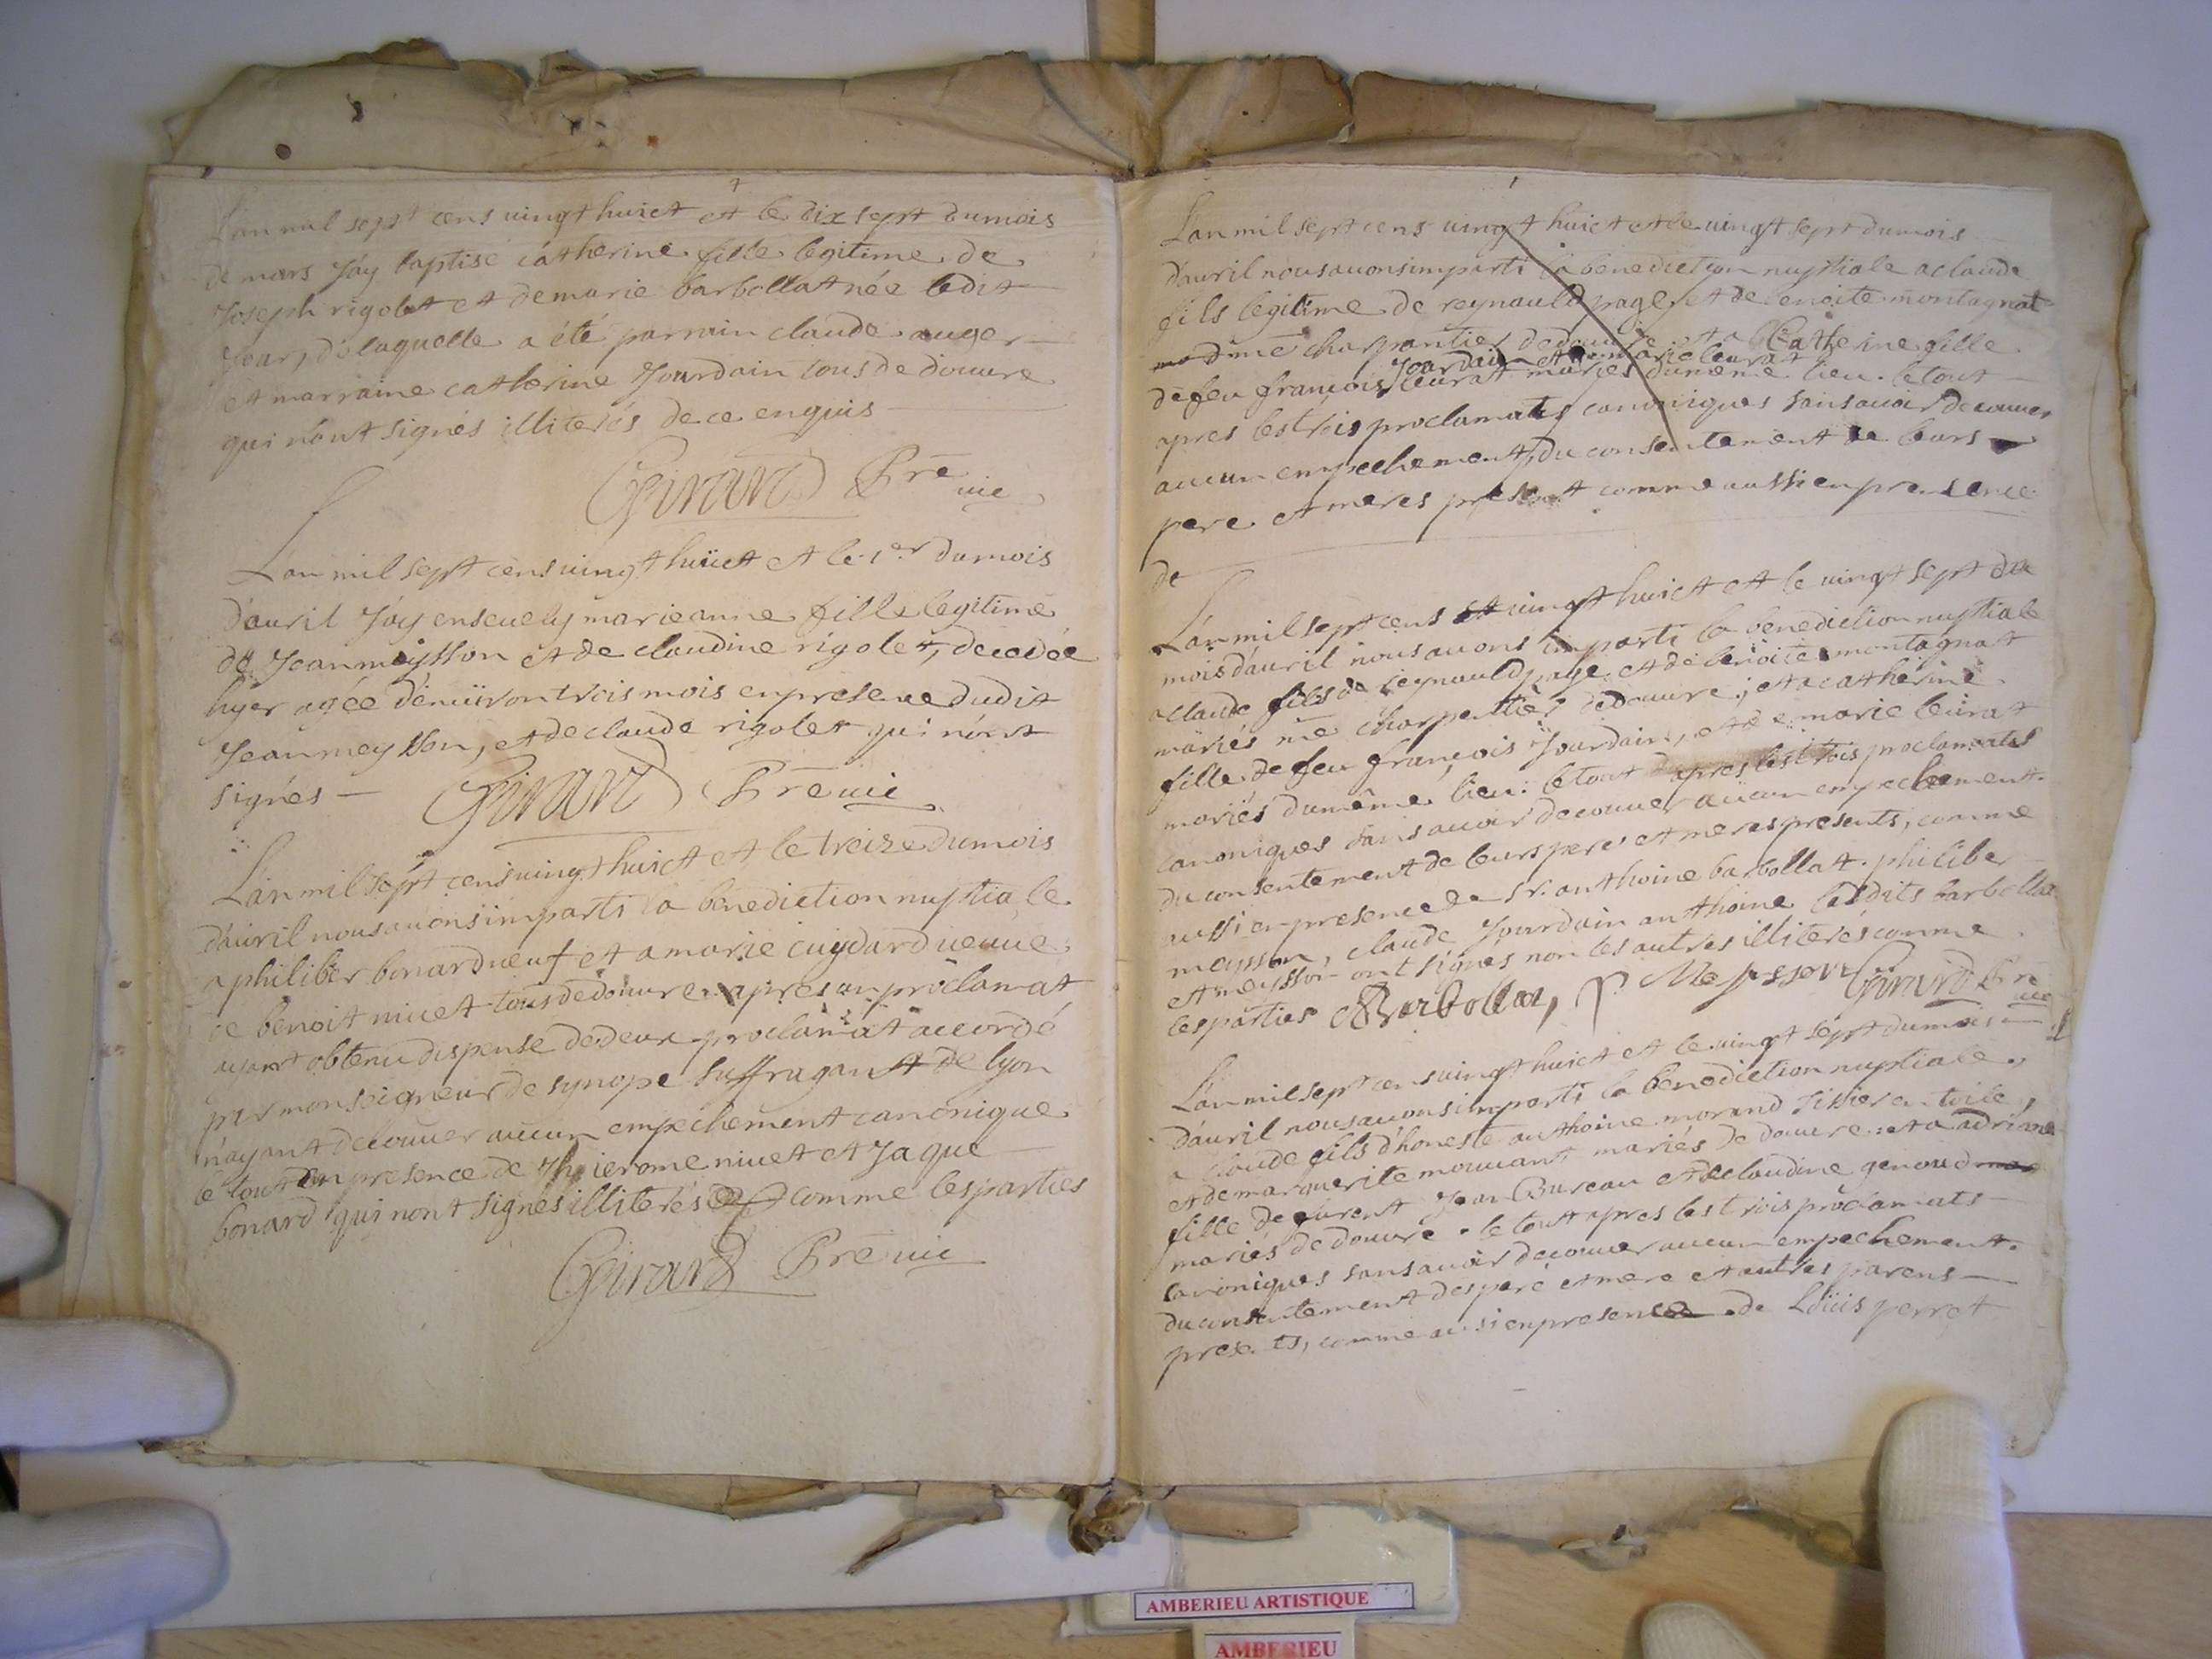 L'an mil sept cens uingt huict et le dix sept du mois
de mars J'ay baptisé catherine fille legitime de
Joseph rigolet et de marie barbollat née ledit
Jour, de laquelle a été parrain claude auger
et marraine catherine Jourdain tous de douure
qui n'ont signés illiterés de ce enquis
Girard Pre uic
L'an mil sept cens uingt huict et le 1er du mois
d'auril J'ay enseuely marie anne fille legitime
de Jean meysson et de claudine rigolet, decedée
hyer agée d'enuiron trois mois en presence dudit
Jean meysson, et de claude rigolet qui n'ont
signés Girard Pre uic
L'an mil sept cens uingt huict et le treize du mois
d'auril nous auons imparti la benediction nuptiale
a philiber bonard ueuf et a marie cuydard ueuue
de benoit niuet tous de douure apres un proclamat
ayant obtenu dispense de deux proclamat accordé
par monseigneur de synope suffragant de lyon
n'ayant decouuer aucun empechement canonique
le tout en presence de ierome niuet et Jaque
bonard qui n'ont signés illiterés comme les parties
Girard Pre uic
L'an mil sept cens uingt huict et le uingt sept du mois
d'auril nous auons imparti la benediction nuptiale a claude
fils legitime de reynauld page et de benoite montagnat
me charpantier de douure et a Catherine fille
Jourdain et de marie leurat
de feu francois leurat mariés du meme lieu. le tout
apres les trois proclamats canoniques sans auoir decouuer
aucun empechement, du consentement de leurs
pere et meres present comme aussi en presence
de
L'an mil sept cens et uingt huict et le uingt sept du
mois d'auril nous auons imparti la benediction nuptiale
a claude fils de reynauld page et de benoite montagnat
mariés me charpentier de douure; et a catherine
fille de feu françois Jourdain, et de marie leurat
mariés du même lieu: le tout apres les trois proclamats
canoniques sans auoir decouuer aucun empechement.
du consentement de leurs pere et meres presents, comme
aussi en presence de sr. anthoine barbollat. philiber
meysson, claude Jourdain anthoine lesdits barbollat
et meysson ont signés non les autres illiterés comme
les parties Barbollat, P. Meysson Girard Pre
uic
L'an mil sept cens uingt huict et le uingt sept du mois
d'auril nous auons imparti la benediction nuptiale
a claude fils d'honeste anthoine morand tissier en toile,
et de marguerite mouuant mariés de douure: et a adriane
fille de Jean Bureau et de claudine genoud
mariés de douure. le tout apres les trois proclamats
canoniques sans auoir decouuer aucun empechement.
du consentement des pere et mere et autres parens
presents, comme aussi en presence de Loüis perret
AMBERIEU ARTISTIQUE
AMBERIEU